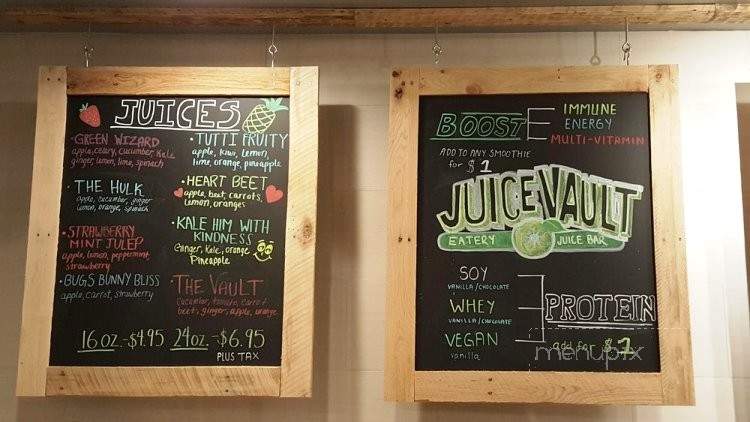 JUICES
•GREEN WIZARD
apple, celery, cucumber, kale
ginger, lemon, lime, spinach
•THE HULK
apple, cucumber, ginger
lemon, orange, spinach
•STRAWBERRY
MINT JULEP
apple, lemon, peppermint
strawberry
•BUGS BUNNY BLISS
apple, carrot, strawberry
•TUTTI FRUITY
apple, kiwi, lemon,
lime, orange, pineapple
•HEART BEET
apple, beet, carrots,
lemon, oranges
•KALE HIM WITH
KINDNESS
Ginger, kale, orange
Pineapple
•THE VAULT
Cucumber, tomato, carrot
beet, ginger, apple, orange
16oz.-$4.95 24oz.-$6.95
PLUS TAX
BOOST
IMMUNE
ENERGY
MULTI-VITAMIN
ADD TO ANY SMOOTHIE
for $1
JUICE VAULT
EATERY JUICE BAR
SOY
VANILLA/CHOCOLATE
WHEY
VANILLA/CHOCOLATE
VEGAN
vanilla
PROTEIN
add for $1
menupix